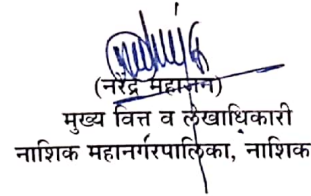 (नरेंद्र महाजन)
मुख्य वित्त व लेखाधिकारी
नाशिक महानगरपालिका, नाशिक